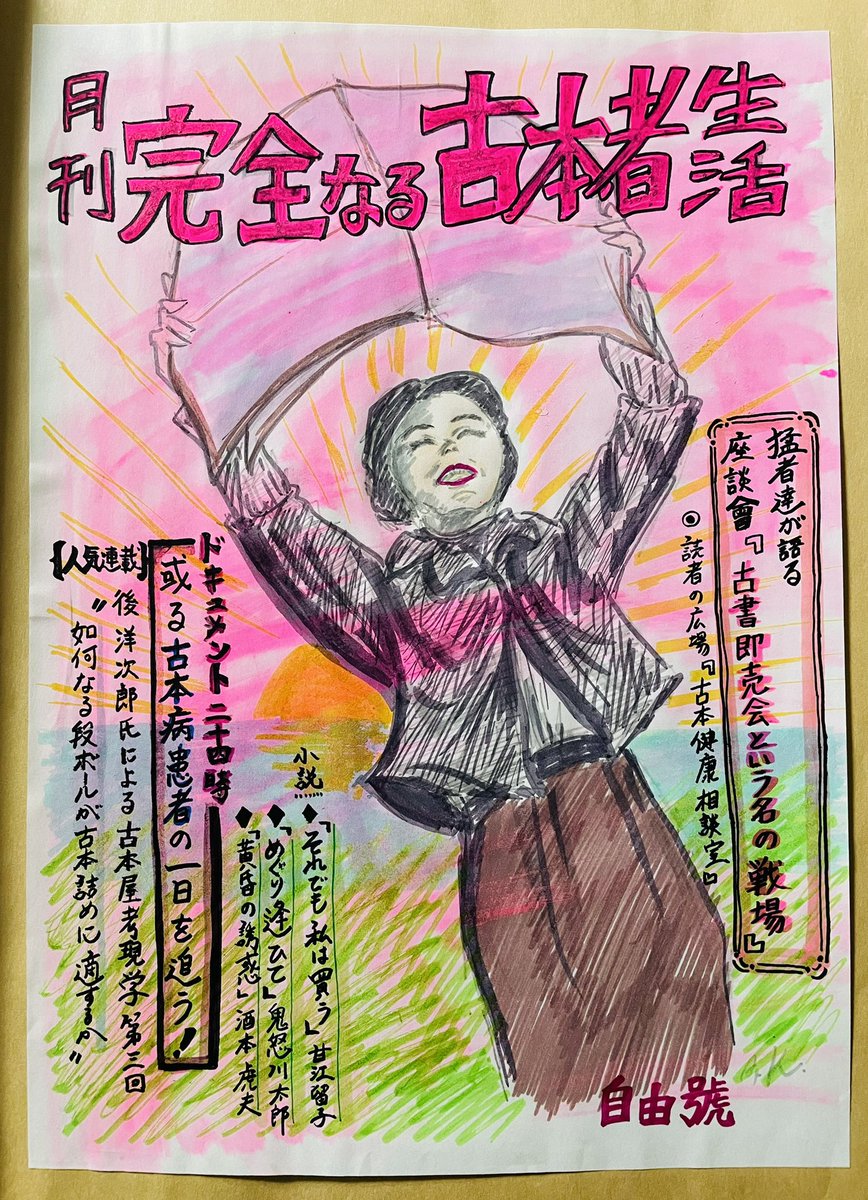 月刊
完全なる古本者生活
猛者達が語る
座談會『古書即売会という名の戦場』
◉読者の広場『古本健康相談室』
小説
◆「それでも私は買う」甘江留子
◆「めぐり逢ひて」鬼怒川太郎
◆「黄昏の誘惑」酒本虎夫
ドキュメント二十四時
或る古本病患者の一日を追う!
【人気連載】
後洋次郎氏による古本屋考現学第三回
"如何なる段ボールが古本詰めに適するか"
自由號